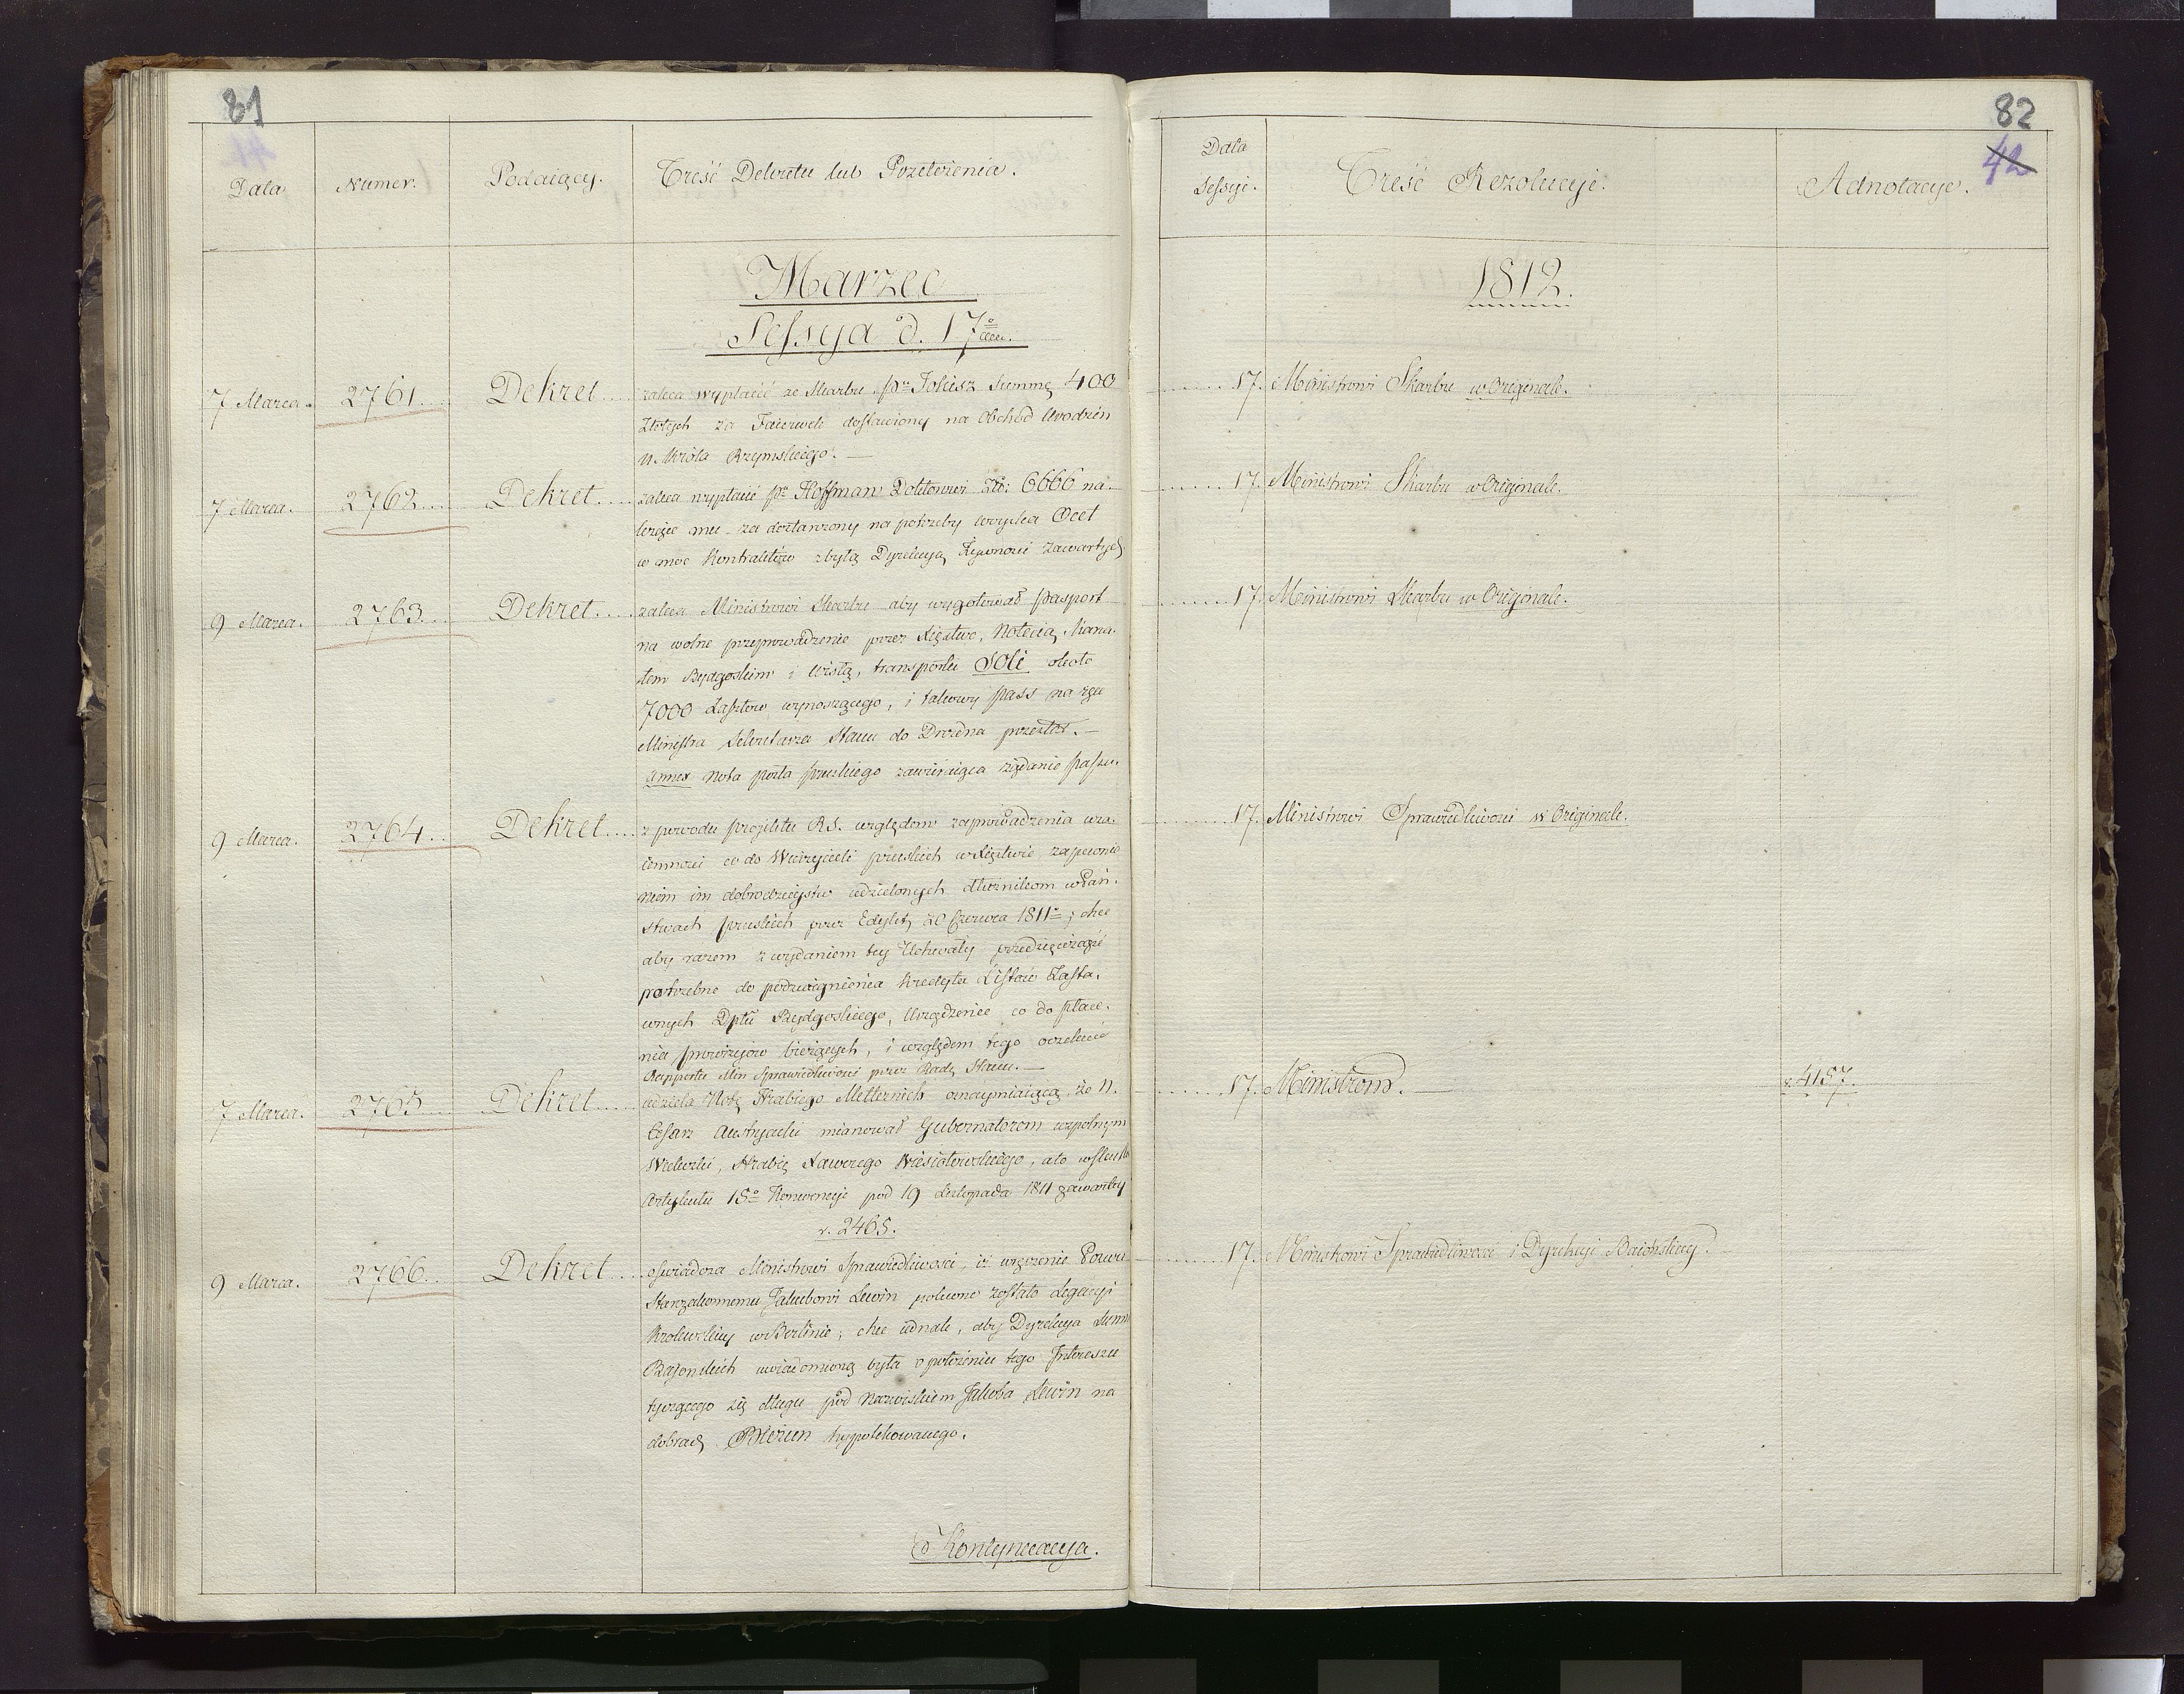 81
41
Data
Numer.
Podaiący.
Treść Dekretu lub Przełożenia.
Marzec
Sessya d. 17º
7 Marca. 2761. Dekret zaleca wypłacić ze Skarbu Pu Tokisz Summę 400
Złotych za Faierwerk dostawiony na Obchod Urodzin
N. Króla Rzymskiego.
7 Marca. 2762 Dekret zaleca wypłacić Pu Hoffman Doktorowi Złt: 6666 na-
leżące mu za dostarzony na potrzeby woyska Ocet
w moc Kontraktów z byłą Dyrekcyą Żywności zawartych
9 Marca. 2763. Dekret zaleca Ministrowi Skarbu aby wygotował pasport
na wolne przeprowadzenie przez Xięstwo, Notecią, Kana-
łem Bydgoskim i Wisłą, transportu Soli około
7000 Łasztów wynoszącego, i takowy pass na ręce
Ministra Sekretarza Stanu do Drezna przesłał.
Annex Nota posła pruskiego zawieraiąca żądanie paszp.
9 Marca. 2764 Dekret z powodu projektu R.S. względem zaprowadzenia wza-
iemności co do Wierzycieli pruskich w Xięstwie, zapewnie
niem im dobrodzieystw udzielonych dłużnikom w Pań-
stwach pruskich przez Edykt 20 Czerwca 1811º; chce
aby razem z wydaniem tey Uchwały przedsięwziąść
potrzebne do podzwignienia kredytu Listów Zasta-
wnych Dptu Bydgoskiego, Urządzenie co do płace-
nia prowizyów bieżących, i względem tego oczekiwa
Rapportu Min Sprawiedliwości przez Radę Stanu.
7 Marca. 2765 Dekret udziela Notę Hrabiego Metternich oznaymiaiącą, że N.
Cesarz Austryacki mianował Gubernatorem wspolnym
Wieliczki, Hrabię Xawerego Wiesiołowskiego, a to w skutk
Artykułu 15º Konwencyi pod 19 Listopada 1811 zawartey
v. 2465.
9 Marca. 2766. Dekret oświadcza Ministrowi Sprawiedliwości, iż wręczenie Pozwu
Starzakonnemu Jakubowi Lewin polecone zostało Legacyi
Krolewskiey w Berlinie; chce iednak, aby Dyrekcya Summ
Bajonskich uwiadomioną była o położeniu tego Interessu
tyczącego się długu pod Nazwiskiem Jakoba Lewin na
dobrach hypotekowanego.
Kontynuacya.
82
42
Data
Sessyi.
Treść Rezolucyi.
Adnotacye.
1812.
17. Ministrowi Skarbu w Originale.
17. Ministrowi Skarbu w Originale.
17. Ministrowi Skarbu w Originale.
17. Ministrowi Sprawiedliwości w Originale.
17. Ministrom. v. 4157.
17. Ministrowi Sprawiedliwości i Dyrekcyi Baiońskiey.